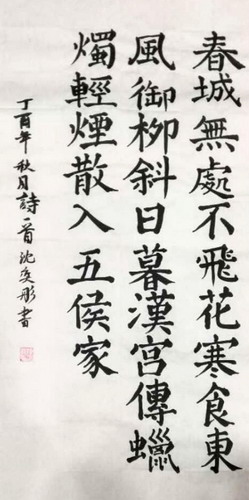 春城無處不飛花寒食東
風御柳斜日暮漢宮傳蠟
燭輕煙散入五侯家
丁酉年秋月詩一首沈奕彤書